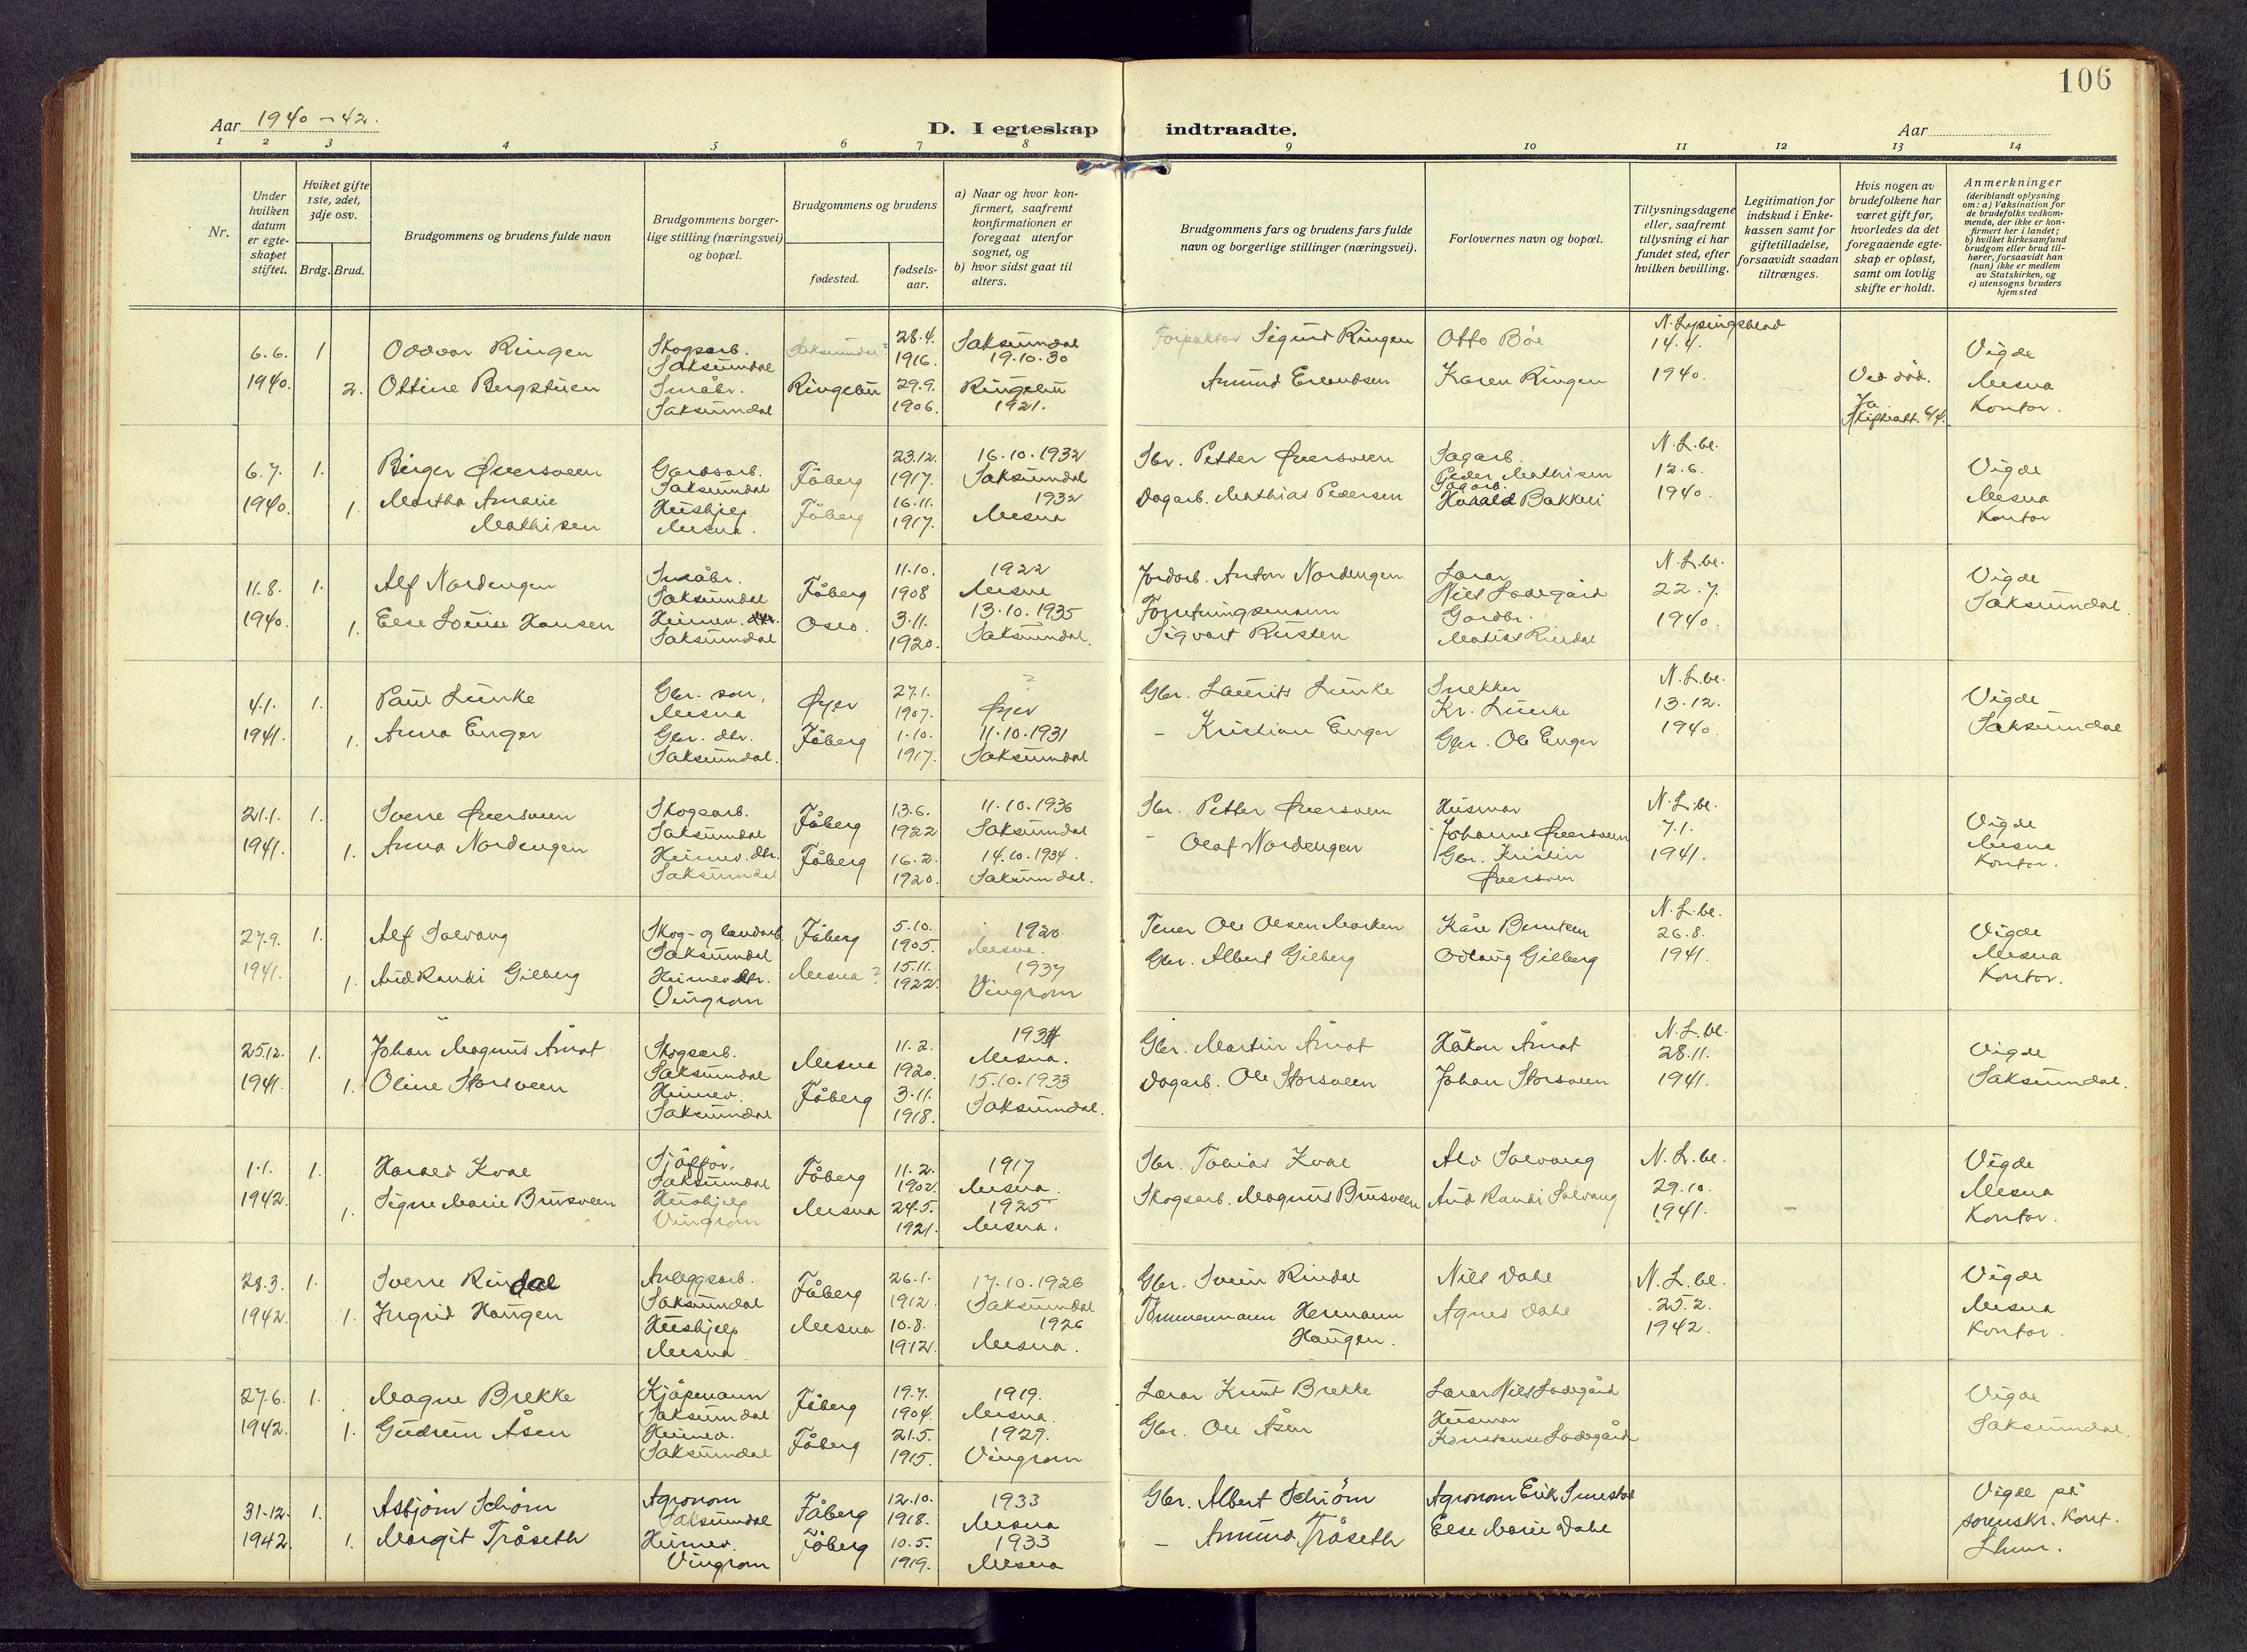 106
Aar 1940-42.
D. I egteskap indtraadte.
Aar
1 2 3 4 5 6 7 8 9 10 11 12 13 14
Nr.
Under hvilken datum er egteskapet stiftet.
Hvilket gifte 1ste, 2det, 3dje osv.
Brdg. Brud.
Brudgommens og brudens fulde navn
Brudgommens borgerlige stilling (næringsvei) og bopæl.
Brudgommens og brudens
fødested.
fødselsaar.
a) Naar og hvor konfirmert, saafremt konfirmationen er foregaat utenfor sognet, og
b) hvor sidst gaat til alters.
Brudgommens fars og brudens fars fulde navn og borgerlige stillinger (næringsvei).
Forlovernes navn og bopæl.
Tillysningsdagene eller, saafremt tillysning ei har fundet sted, efter hvilken bevilling.
Legitimation for indskud i Enkekassen samt for giftetilladelse, forsaavidt saadan tiltrænges.
Hvis nogen av brudefolkene har været gift før, hvorledes da det foregaaende egteskap er opløst, samt om lovlig skifte er holdt.
Anmerkninger (deriblandt oplysning om: a) Vaksination for de brudefolks vedkommende, der ikke er konfirmert her i landet; b) hvilket kirkesamfund brudgom eller brud tilhører, forsaavidt han (hun) ikke er medlem av Statskirken, og c) utensogns bruders hjemsted
6.6. 1 Oddvar Ringen Skogsarb. Saksumdal Saksumdal? 28.4. 1916. Saksumdal 19.10.30 Forpakter Sigurd Ringen Otto Bøe N. Lysingsblad 14.4. Vigde
1940. 2. Ottine Bergstuen Småbr. Saksumdal Ringebu 29.9. 1906. Ringebu 1921. Amund Erlandsen Karen Ringen 1940. Ved død. Ja Mesna Kontor.
6.7. 1. Birger Øversveen Gardsarb. Saksumdal Fåberg 23.12. 1917. 16.10.1932 Saksumdal Sbr. Petter Øversveen Sagarb. Peder Mathisen N.L.bl. 12.6. Vigde
1940. 1. Martha Amalie Mathisen Hushjelp Mesna. Fåberg 16.11. 1917. 1932 Mesna Dagarb. Mathias Pedersen Sagarb. Harald Bakkeli 1940. Mesna Kontor
11.8. 1. Alf Nordengen Småbr. Saksumdal Fåberg 11.10. 1908 1922 Mesna Jordarb. Anton Nordengen Lærar Nils Ladegård N.L.bl. 22.7. Vigde
1940. 1. Else Louise Hansen Heimev. dtr. Saksumdal Oslo. 3.11. 1920. 13.10.1935 Saksumdal. Forretningsmann Sigvart Rusten Gardbr. Mathias Rindal 1940. Saksumdal.
4.1. 1. Paul Lunke Gbr. søn, Mesna Øyer 27.1. 1907. ? Øyer Gbr. Laurits Lunke Snekker Kr. Lunke N.L.bl. 13.12. Vigde
1941. 1. Anna Enger Gbr. dtr. Saksumdal. Fåberg 1.10. 1917. 11.10.1931 Saksumdal – Kristian Enger Gbr. Ole Enger 1940. Saksumdal
21.1. 1. Sverre Øversveen Skogsarb. Saksumdal Fåberg 13.6. 1922 11.10.1936 Saksumdal Sbr. Petter Øversveen Husmor Johanne Øversveen N.L.bl. 7.1. Vigde
1941. 1. Anna Nordengen Heimev. dtr. Saksumdal Fåberg 16.2. 1920. 14.10.1934. Saksumdal. – Olaf Nordengen Gbr. Kristin Øversveen 1941. Mesna Kontor.
27.9. 1. Alf Solvang Skog- og landarb. Saksumdal Fåberg 5.10. 1905. 1920 Mesna. Ole Olsen Marken Kåre Berntsen N.L.bl. 26.8. Vigde
1941. 1. Aud Randi Gilberg Heimev. dtr. Vingrom Mesna? 15.11. 1922. 1937 Vingrom Gbr. Albert Gilberg Odlaug Gilberg 1941. Mesna Kontor.
25.12. 1. Johan Magnus Åmot Skogsarb. Saksumdal Mesna 11.2. 1920. 1934 Mesna. Gbr. Martin Åmot Håkon Åmot N.L.bl. 28.11. Vigde
1941. 1. Oline Storsveen Heimev. Saksumdal Fåberg 3.11. 1918. 15.10.1933 Saksumdal. Dagarb. Ole Storsveen Johan Storsveen 1941. Saksumdal.
1.1. 1. Harald Kval Sjåffør. Saksumdal Fåberg 11.2. 1902. 1917 Mesna. Sbr. Tobias Kval Alv Solvang N.L.bl. 29.10. Vigde
1942. 1. Signe Marie Brusveen Hushjelp Vingrom Mesna 24.5. 1921. 1925 Mesna. Skogsarb. Magnus Brusveen Aud Randi Solvang 1941. – Mesna Kontor.
28.3. 1. Sverre Rindal Anleggsarb. Saksumdal Fåberg 26.1. 1912. 17.10.1926 Saksumdal Gbr. Svein Rindal Nils Dahl N.L.bl. 25.2. Vigde
1942. 1. Ingrid Haugen Hushjelp Mesna Mesna 10.8. 1912. 1926 Mesna. Tømmermann Hermann Haugen. Agnes Dahl 1942. Mesna Kontor.
27.6. 1. Magne Brekke Kjøpmann Saksumdal Fåberg 19.7. 1904. 1919. Mesna. Lærar Knut Brekke Lærar Nils Ladegård Vigde
1942. 1. Gudrun Åsen Heimev. Saksumdal Fåberg 21.5. 1915. 1929. Vingrom Gbr. Ole Åsen Husmor Konstanse Ladegård Saksumdal.
31.12. 1. Asbjørn Schiøm Agronom Saksumdal Fåberg 12.10. 1918. 1933 Mesna Gbr. Albert Schiøm Agronom Erik Vigde på
1942 1. Margit Tråseth Heimev. Vingrom Fåberg 10.5. 1919. 1933 Mesna – Amund Tråseth Else Marie Dahl sorenskr. kont. Lhmr.